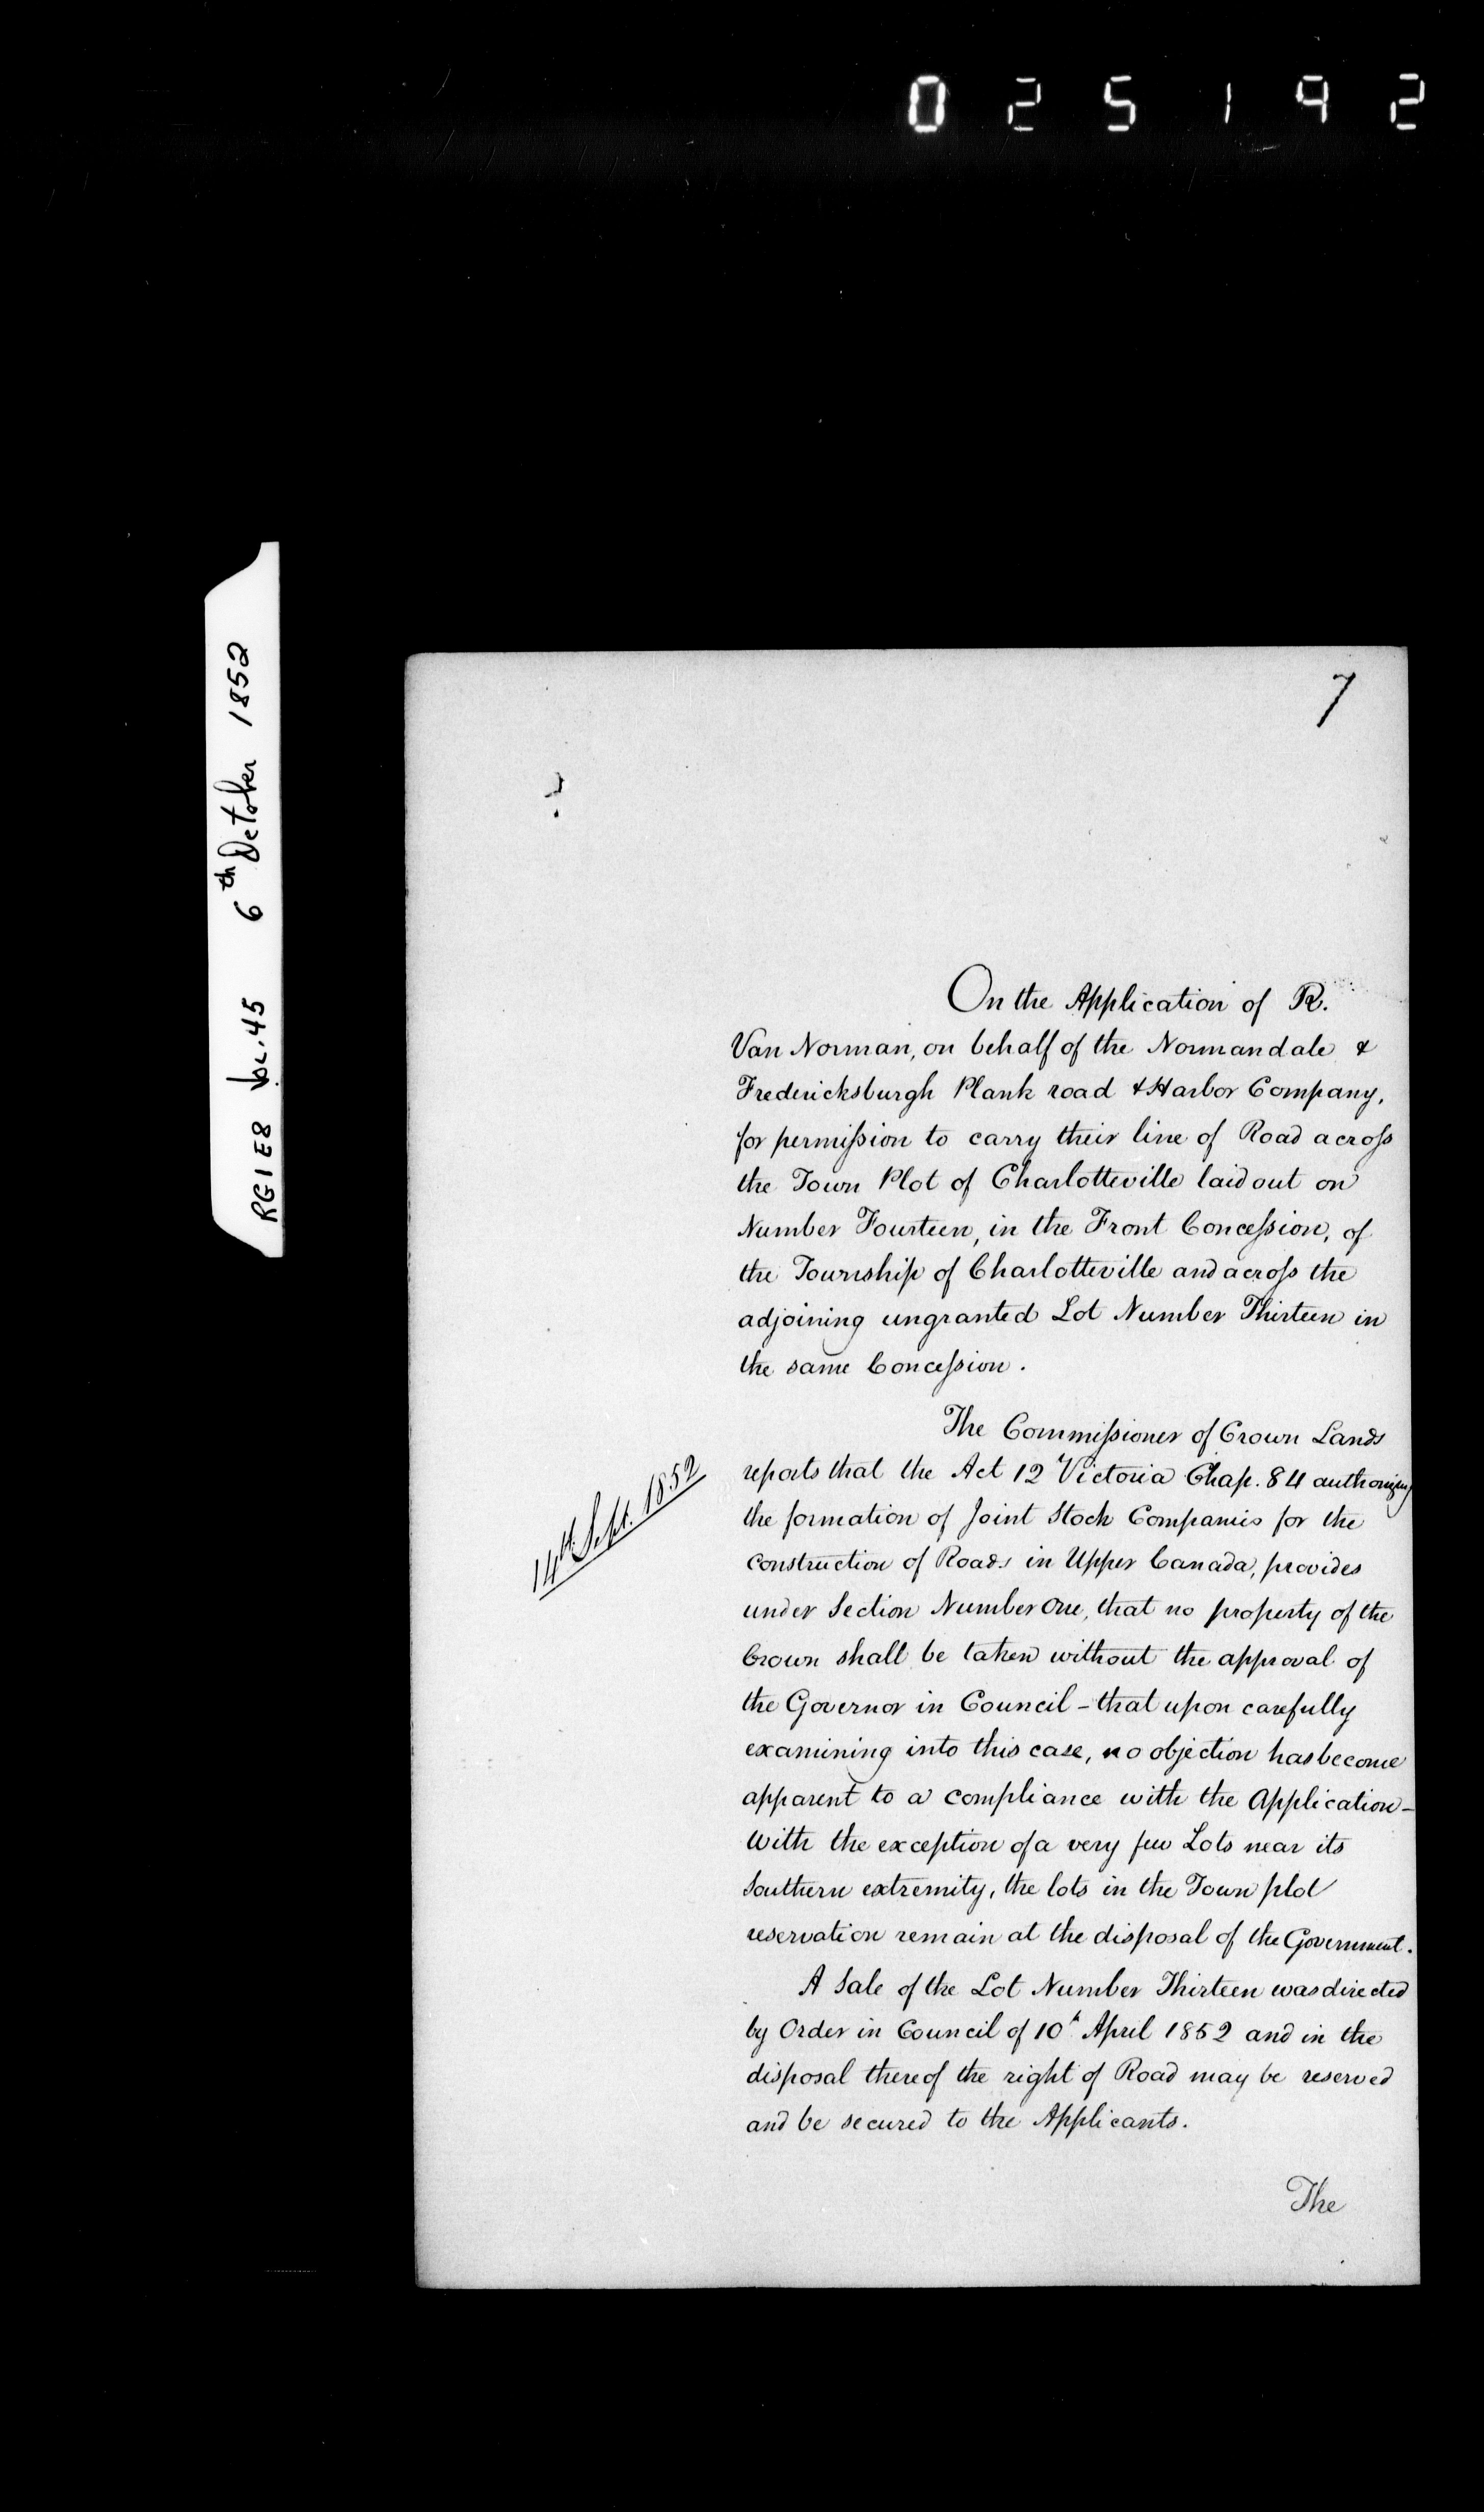 025192
RG1E8 Vol.45 6th October 1852
7
On the Application of R.
Van Norman, on behalf of the Normandale &
Fredericksburgh Plank road & Harbor Company,
for permission to carry their line of Road across
the Town Plot of Charlotteville laid out on
Number Fourteen, in the Front Concession, of
the Township of Charlotteville and across the
adjoining ungranted Lot Number Thirteen in
the same Concession.
14th Sept. 1852
The Commissioner of Crown Lands
reports that the Act 12 Victoria Chap. 84 authorizing
the formation of Joint Stock Companies for the
construction of Roads in Upper Canada, provides
under Section Number One, that no property of the
Crown shall be taken without the approval of
the Governor in Council - that upon carefully
examining into this case, no objection has become
apparent to a compliance with the Application -
With the exception of a very few Lots near its
Southern extremity, the lots in the Town plot
reservation remain at the disposal of the Government.
A Sale of the Lot Number Thirteen was directed
by Order in Council of 10th April 1852 and in the
disposal thereof the right of Road may be reserved
and be secured to the Applicants.
The